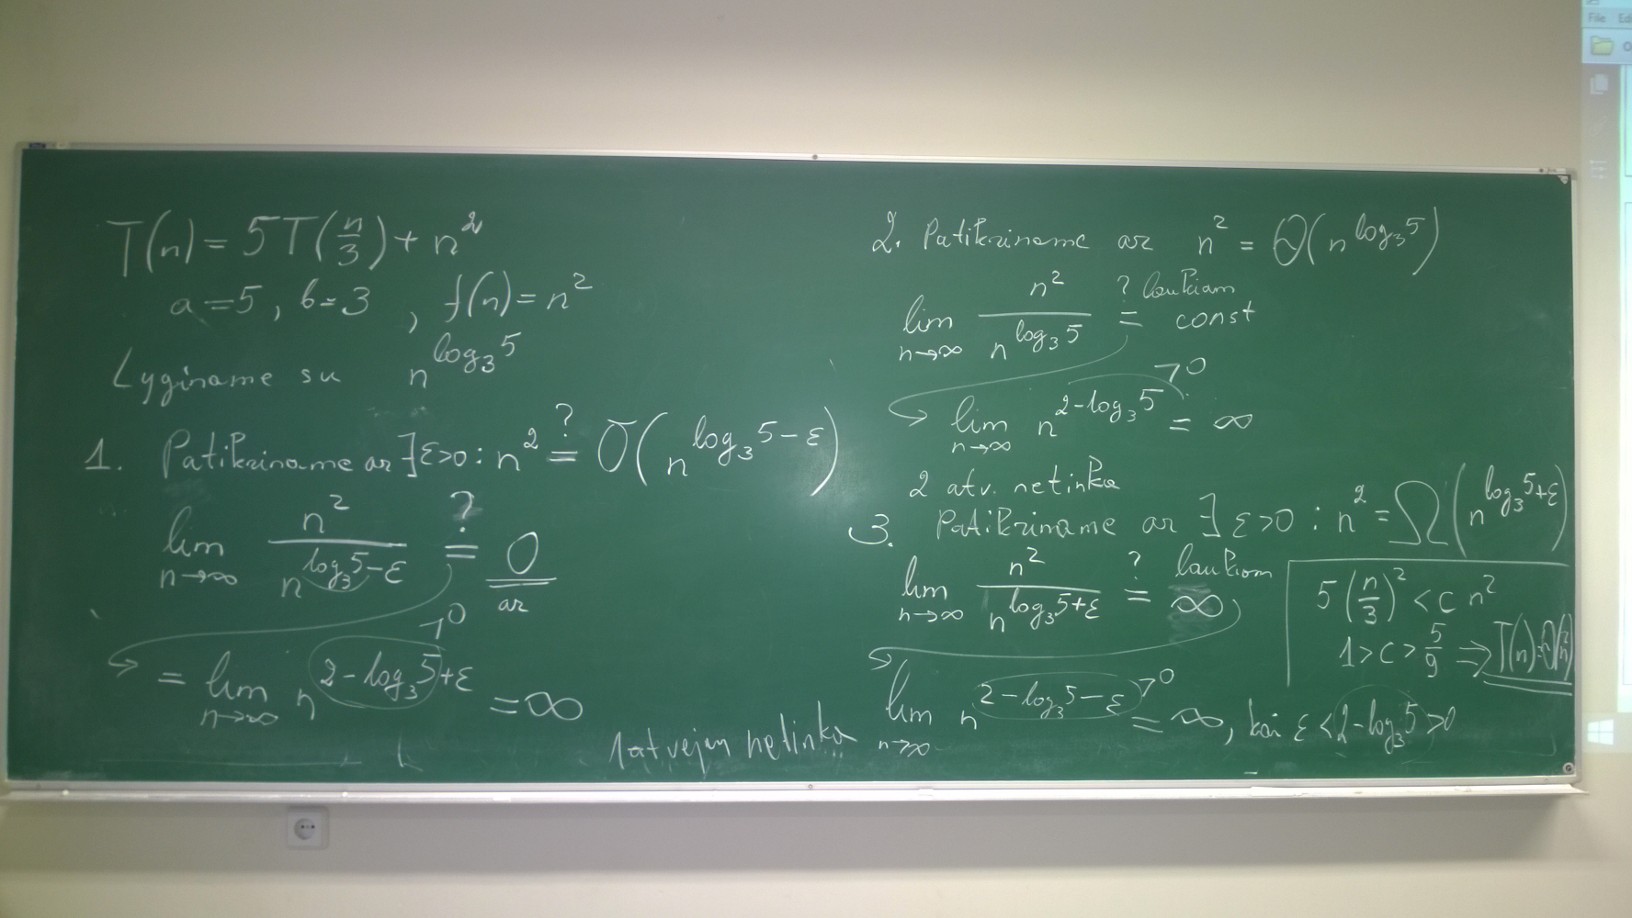 T(n) = 5T(n/3) + n²
a=5, b=3, f(n) = n²
Lyginame su n^(log₃5)
1. Patikriname ar ∃ε>0 : n² =? O(n^(log₃5-ε))
lim n→∞ n² / n^(log₃5-ε) =? 0
ar
>0
= lim n→∞ n^(2-log₃5+ε) = ∞
1 atvejas netinka
2. Patikriname ar n² = Θ(n^(log₃5))
lim n→∞ n² / n^(log₃5) =? laukiam const
>0
lim n→∞ n^(2-log₃5) = ∞
2 atv. netinka
3. Patikriname ar ∃ε>0 : n² = Ω(n^(log₃5+ε))
lim n→∞ n² / n^(log₃5+ε) =? laukiam ∞
lim n→∞ n^(2-log₃5-ε) >0 = ∞, kai ε < 2-log₃5 >0
5(n/3)² < c n²
1 > c > 5/9 ⇒ T(n)=Θ(n²)
File